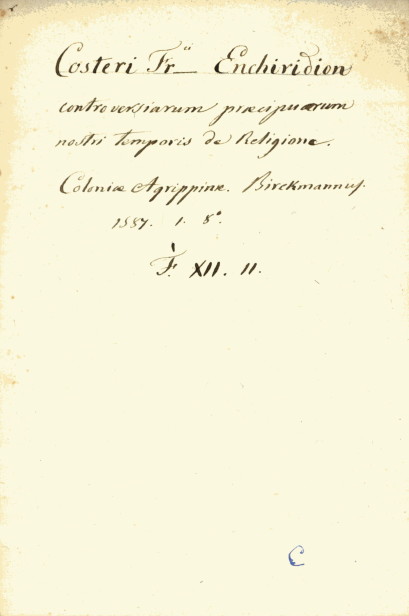 Costeri Fr.ii Enchiridion
controversiarum præcipuarum
nostri temporis de Religione.
Coloniæ Agrippinæ. Birckmannus.
1587. 1. 8°.
F. XII. 11.
C